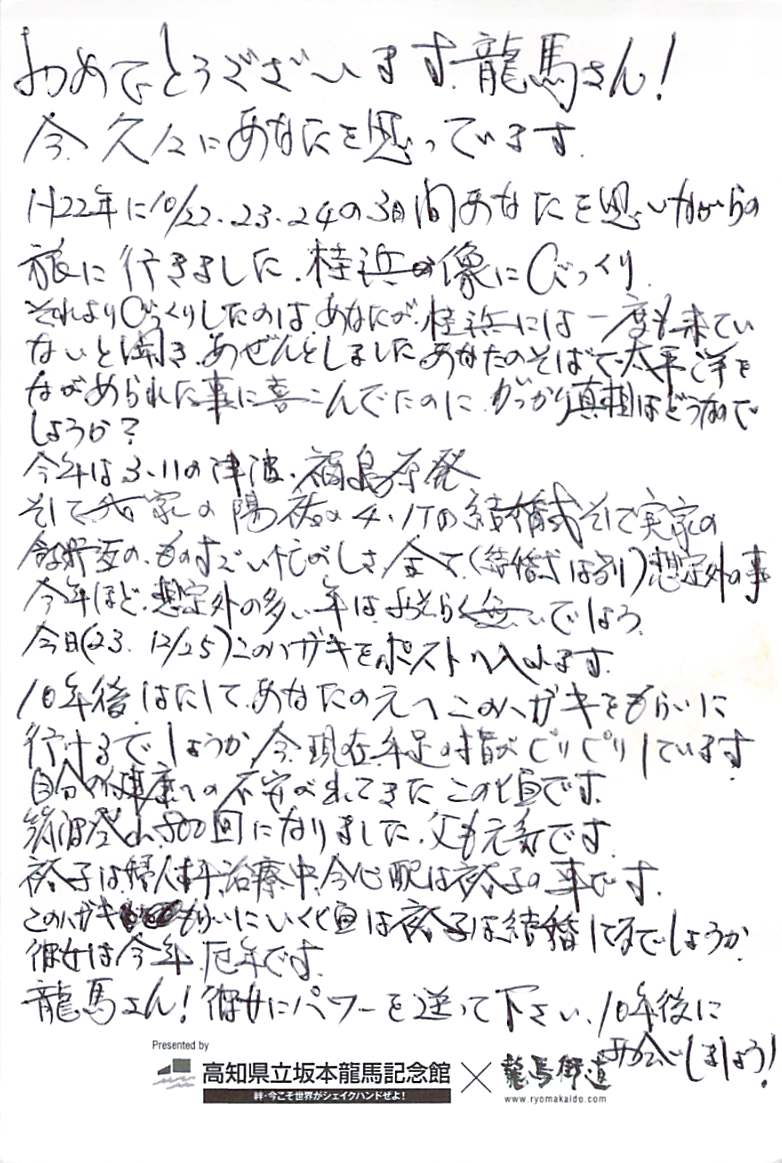 おめでとうございます.龍馬さん!
今.久々にあなたを思っています.
H22年に10/22.23.24の3日間あなたを思いながらの
旅に行きました.桂浜の像にびっくり.
それよりびっくりしたのは.あなたが.桂浜には一度も来てい
ないと聞き.あぜんとしましたあなたのそばで太平洋を
ながめられた事に喜こんでたのに.がっかり真相はどうなので
しょうか?
今年は3.11の津波.福島原発
そして我家の陽祐の4.17の結婚式そして実家の
ものすごい忙がしさ全て.(結婚式は別)想定外の事
今年ほど.想定外の多い年はおそらく無いでしょう.
今日(23.12/25)このハガキをポストへ入れます.
10年後はたして.あなたの元へこのハガキをもらいに
行けるでしょうか.今.現在手足の指がぴりぴりしています
自分の健康への不安が出てきたこの頃です.
筑波登山.500回になりました.父も元気です.
裕子は婦人科治療中.今心配は裕子の事です.
このハガキもらいにいく頃は裕子は結婚してるでしょうか.
彼女は今年厄年です.
龍馬さん!彼女にパワーを送って下さい.10年後に
お会いしましょう!
Presented by
高知県立坂本龍馬記念館 × 龍馬街道
絆・今こそ世界がシェイクハンドぜよ!
www.ryomakaido.com